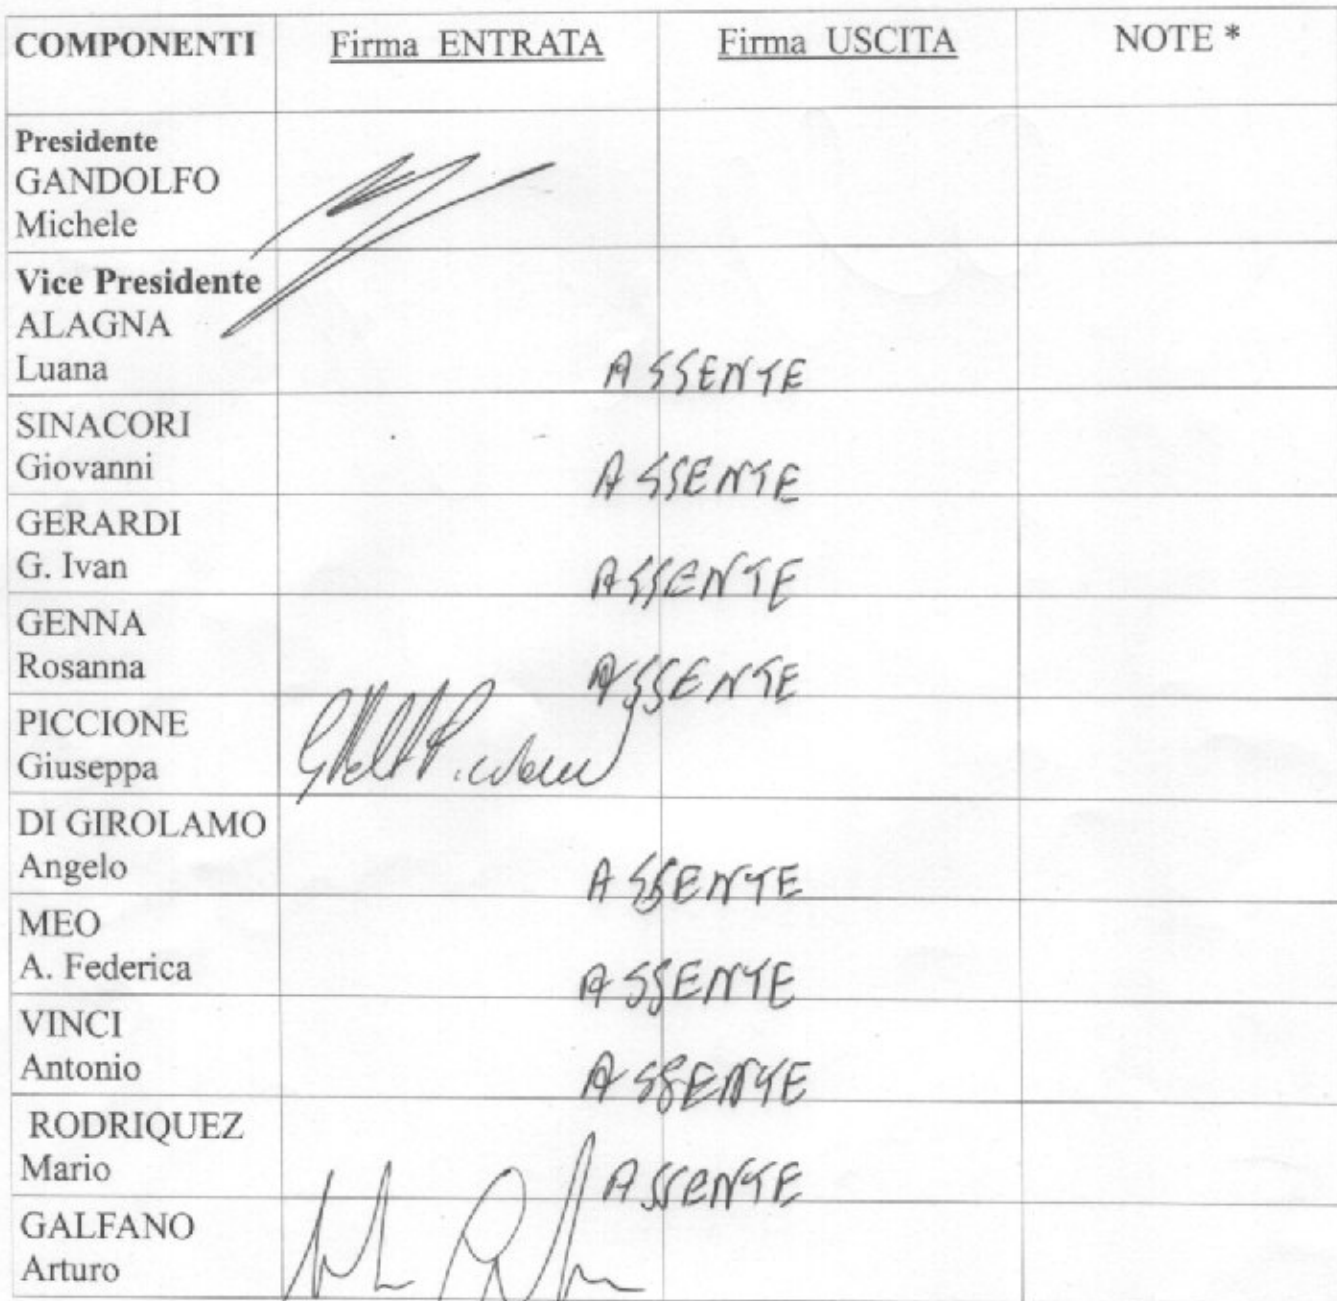 COMPONENTI Firma ENTRATA Firma USCITA NOTE *
Presidente
GANDOLFO
Michele
Vice Presidente
ALAGNA
Luana ASSENTE
SINACORI
Giovanni ASSENTE
GERARDI
G. Ivan ASSENTE
GENNA
Rosanna ASSENTE
PICCIONE
Giuseppa
DI GIROLAMO
Angelo ASSENTE
MEO
A. Federica ASSENTE
VINCI
Antonio ASSENTE
RODRIQUEZ
Mario ASSENTE
GALFANO
Arturo